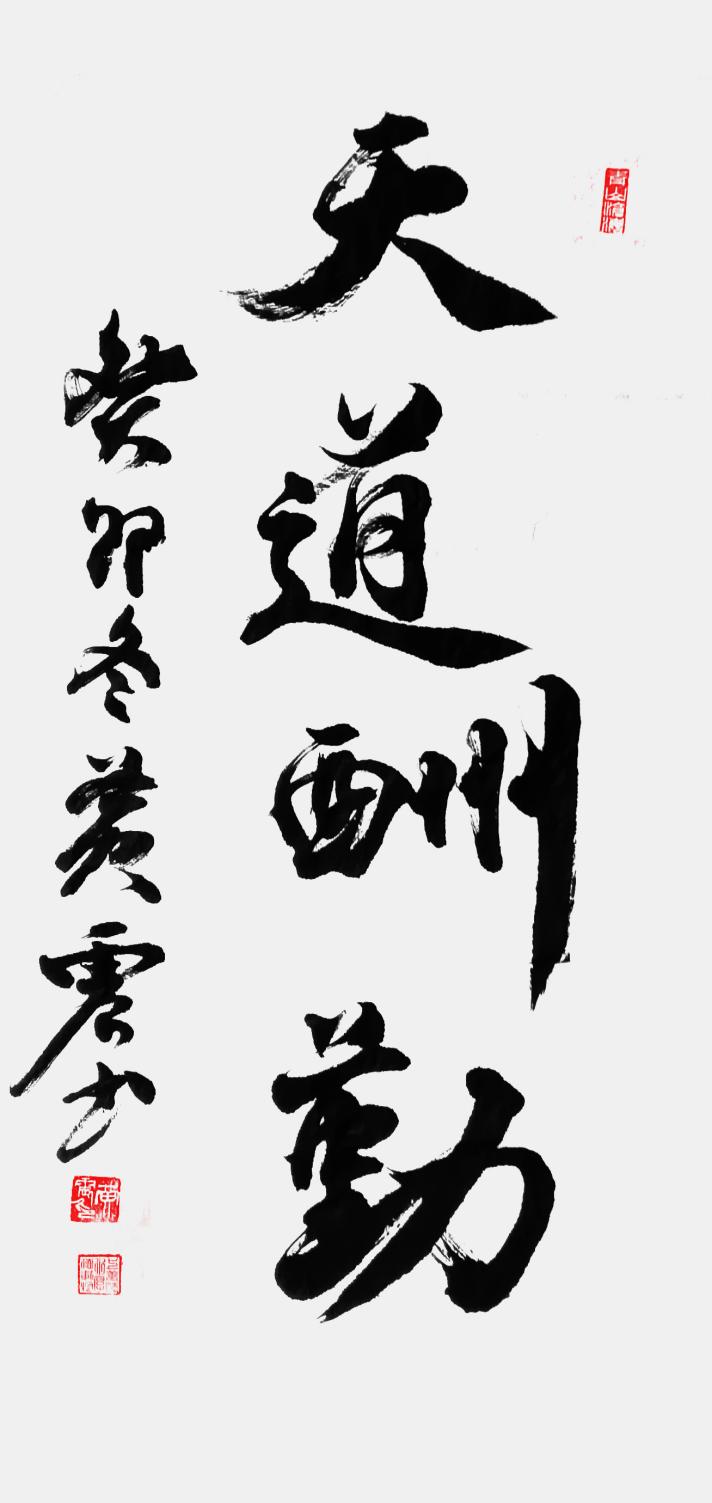 天道酬勤
癸卯冬黄震书